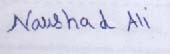 Naushad Ali